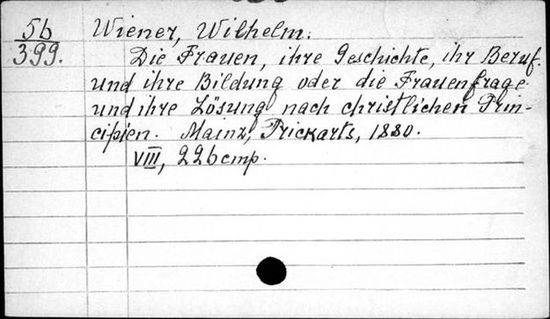 56 Wiener, Wilhelm.
399. Die Frauen, ihre Geschichte, ihr Beruf
und ihre Bildung oder die Frauenfrage
und ihre Lösung nach christlichen Prin-
cipien. Mainz, Frickarts, 1880.
VIII, 226 стр.